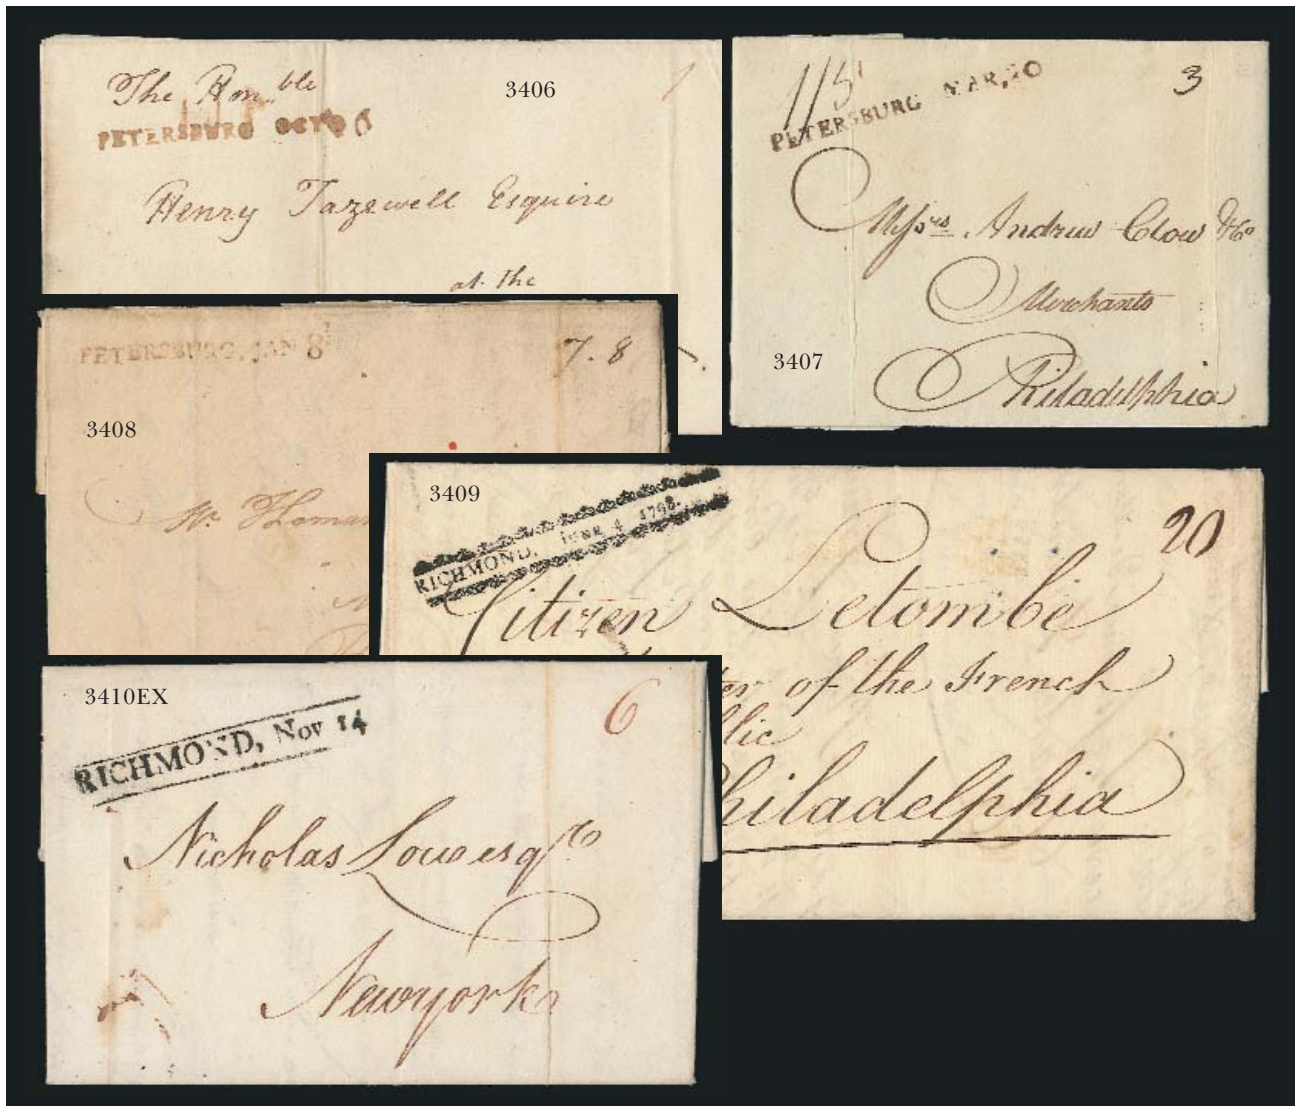 3406
The Honble
PETERSBURG OCT
Henry Tazewell Esquire
at the
3
PETERSBURG MAR, 20
Messrs Andrew Clow & Co
Merchants
Philadelphia
3407
PETERSBURG, JAN 8
7. 8
3408
Mr Thomas
3409
RICHMOND, JUNE 4 1798.
20
Citizen Letombe
of the French
lic
Philadelphia
3410EX
6
RICHMOND, Nov 14
Nicholas Low esqr
Newyork